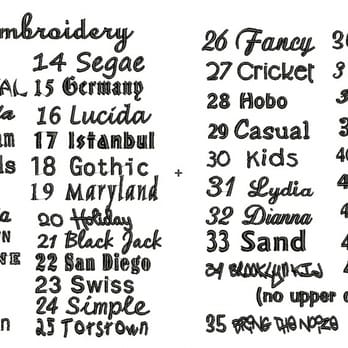 mbroidery
14 Segae
15 Germany
16 Lucida
17 Istanbul
18 Gothic
19 Maryland
20 Holiday
21 Black Jack
22 San Diego
23 Swiss
24 Simple
25 Torstown
26 Fancy
27 Cricket
28 Hobo
29 Casual
30 Kids
31 Lydia
32 Dianna
33 Sand
34 BROOKLYN KID
(no upper
35 BRING THA NOIZE